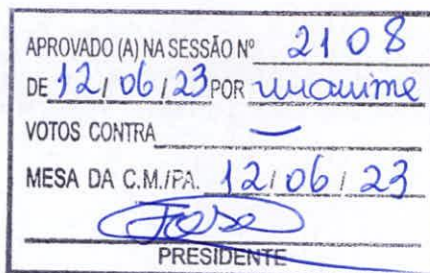 APROVADO (A) NA SESSÃO Nº 2108
DE 12/06/23 POR unanime
VOTOS CONTRA —
MESA DA C.M./PA. 12/06/23
PRESIDENTE